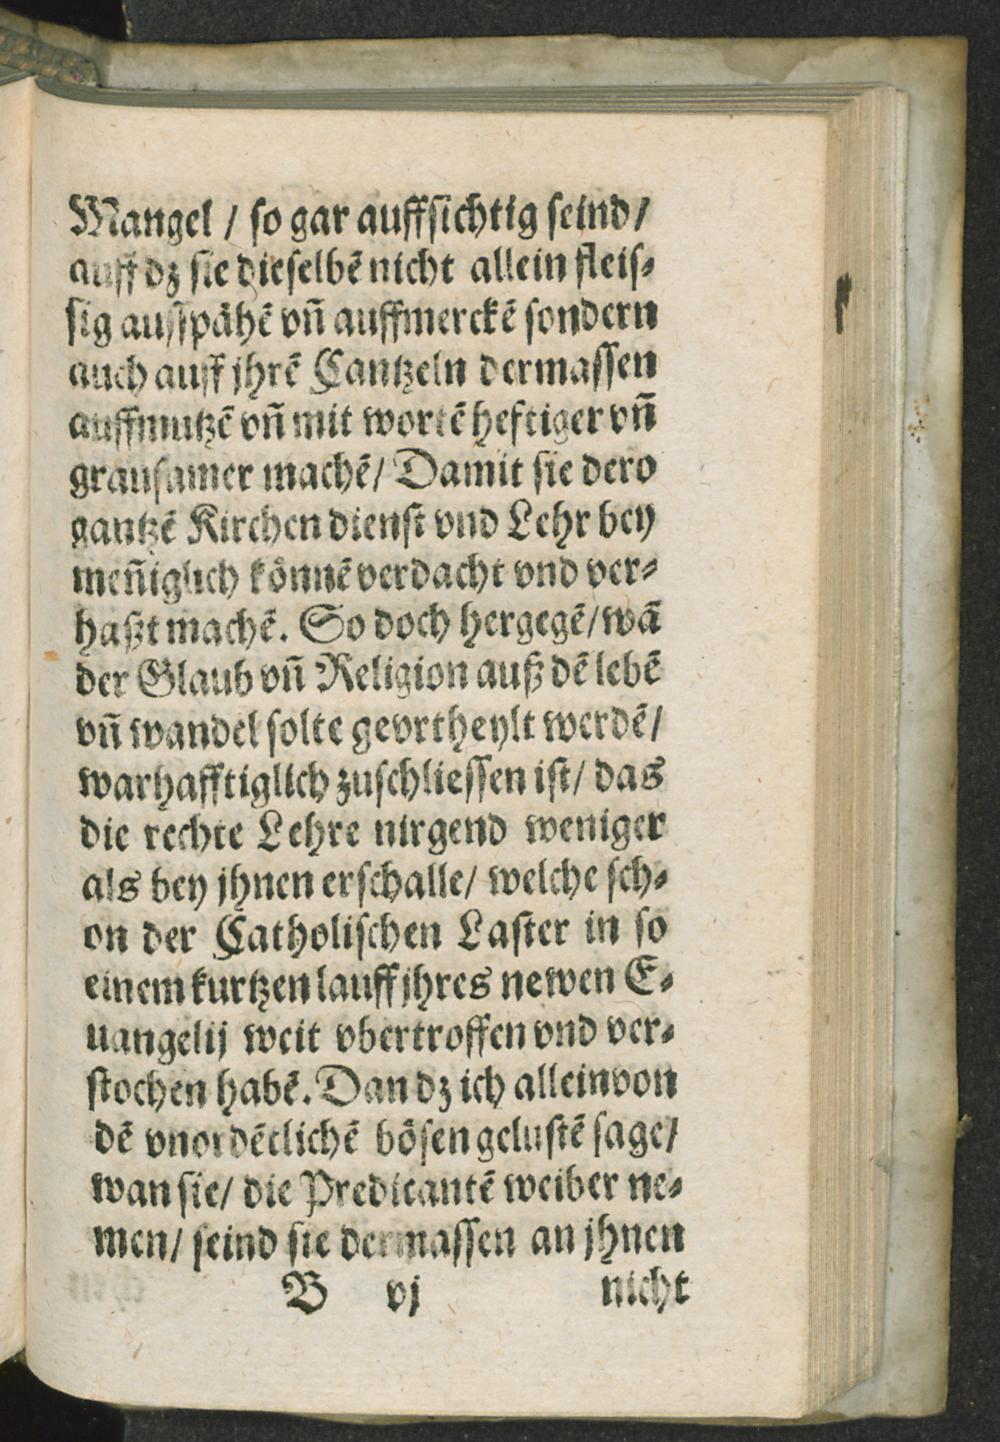 Mangel / so gar auffsichtig seind/
auff dz sie dieselbẽ nicht allein fleis-
sig ausspähẽ vñ auffmerckẽ sondern
auch auff jhrẽ Cantzeln dermassen
auffmutzẽ vñ mit wortẽ heftiger vñ
grausamer machẽ/ Damit sie dero
gantzẽ Kirchen dienst vnd Lehr bey
meñiglich könnẽ verdacht vnd ver-
haßt machẽ. So doch hergegẽ/ wã
der Glaub vñ Religion auß dẽ lebẽ
vñ wandel solte gevrtheylt werdẽ/
warhafftiglich zuschliessen ist/ das
die rechte Lehre nirgend weniger
als bey jhnen erschalle/ welche sch-
on der Catholischen Laster in so
einem kurtzen lauff jhres newen E-
uangelij weit vbertroffen vnd ver-
stochen habẽ. Dan dz ich allein von
dẽ vnordẽtlichẽ bösen gelustẽ sage/
wan sie/ die Predicantẽ weiber ne-
men/ seind sie dermassen an jhnen
B vj nicht